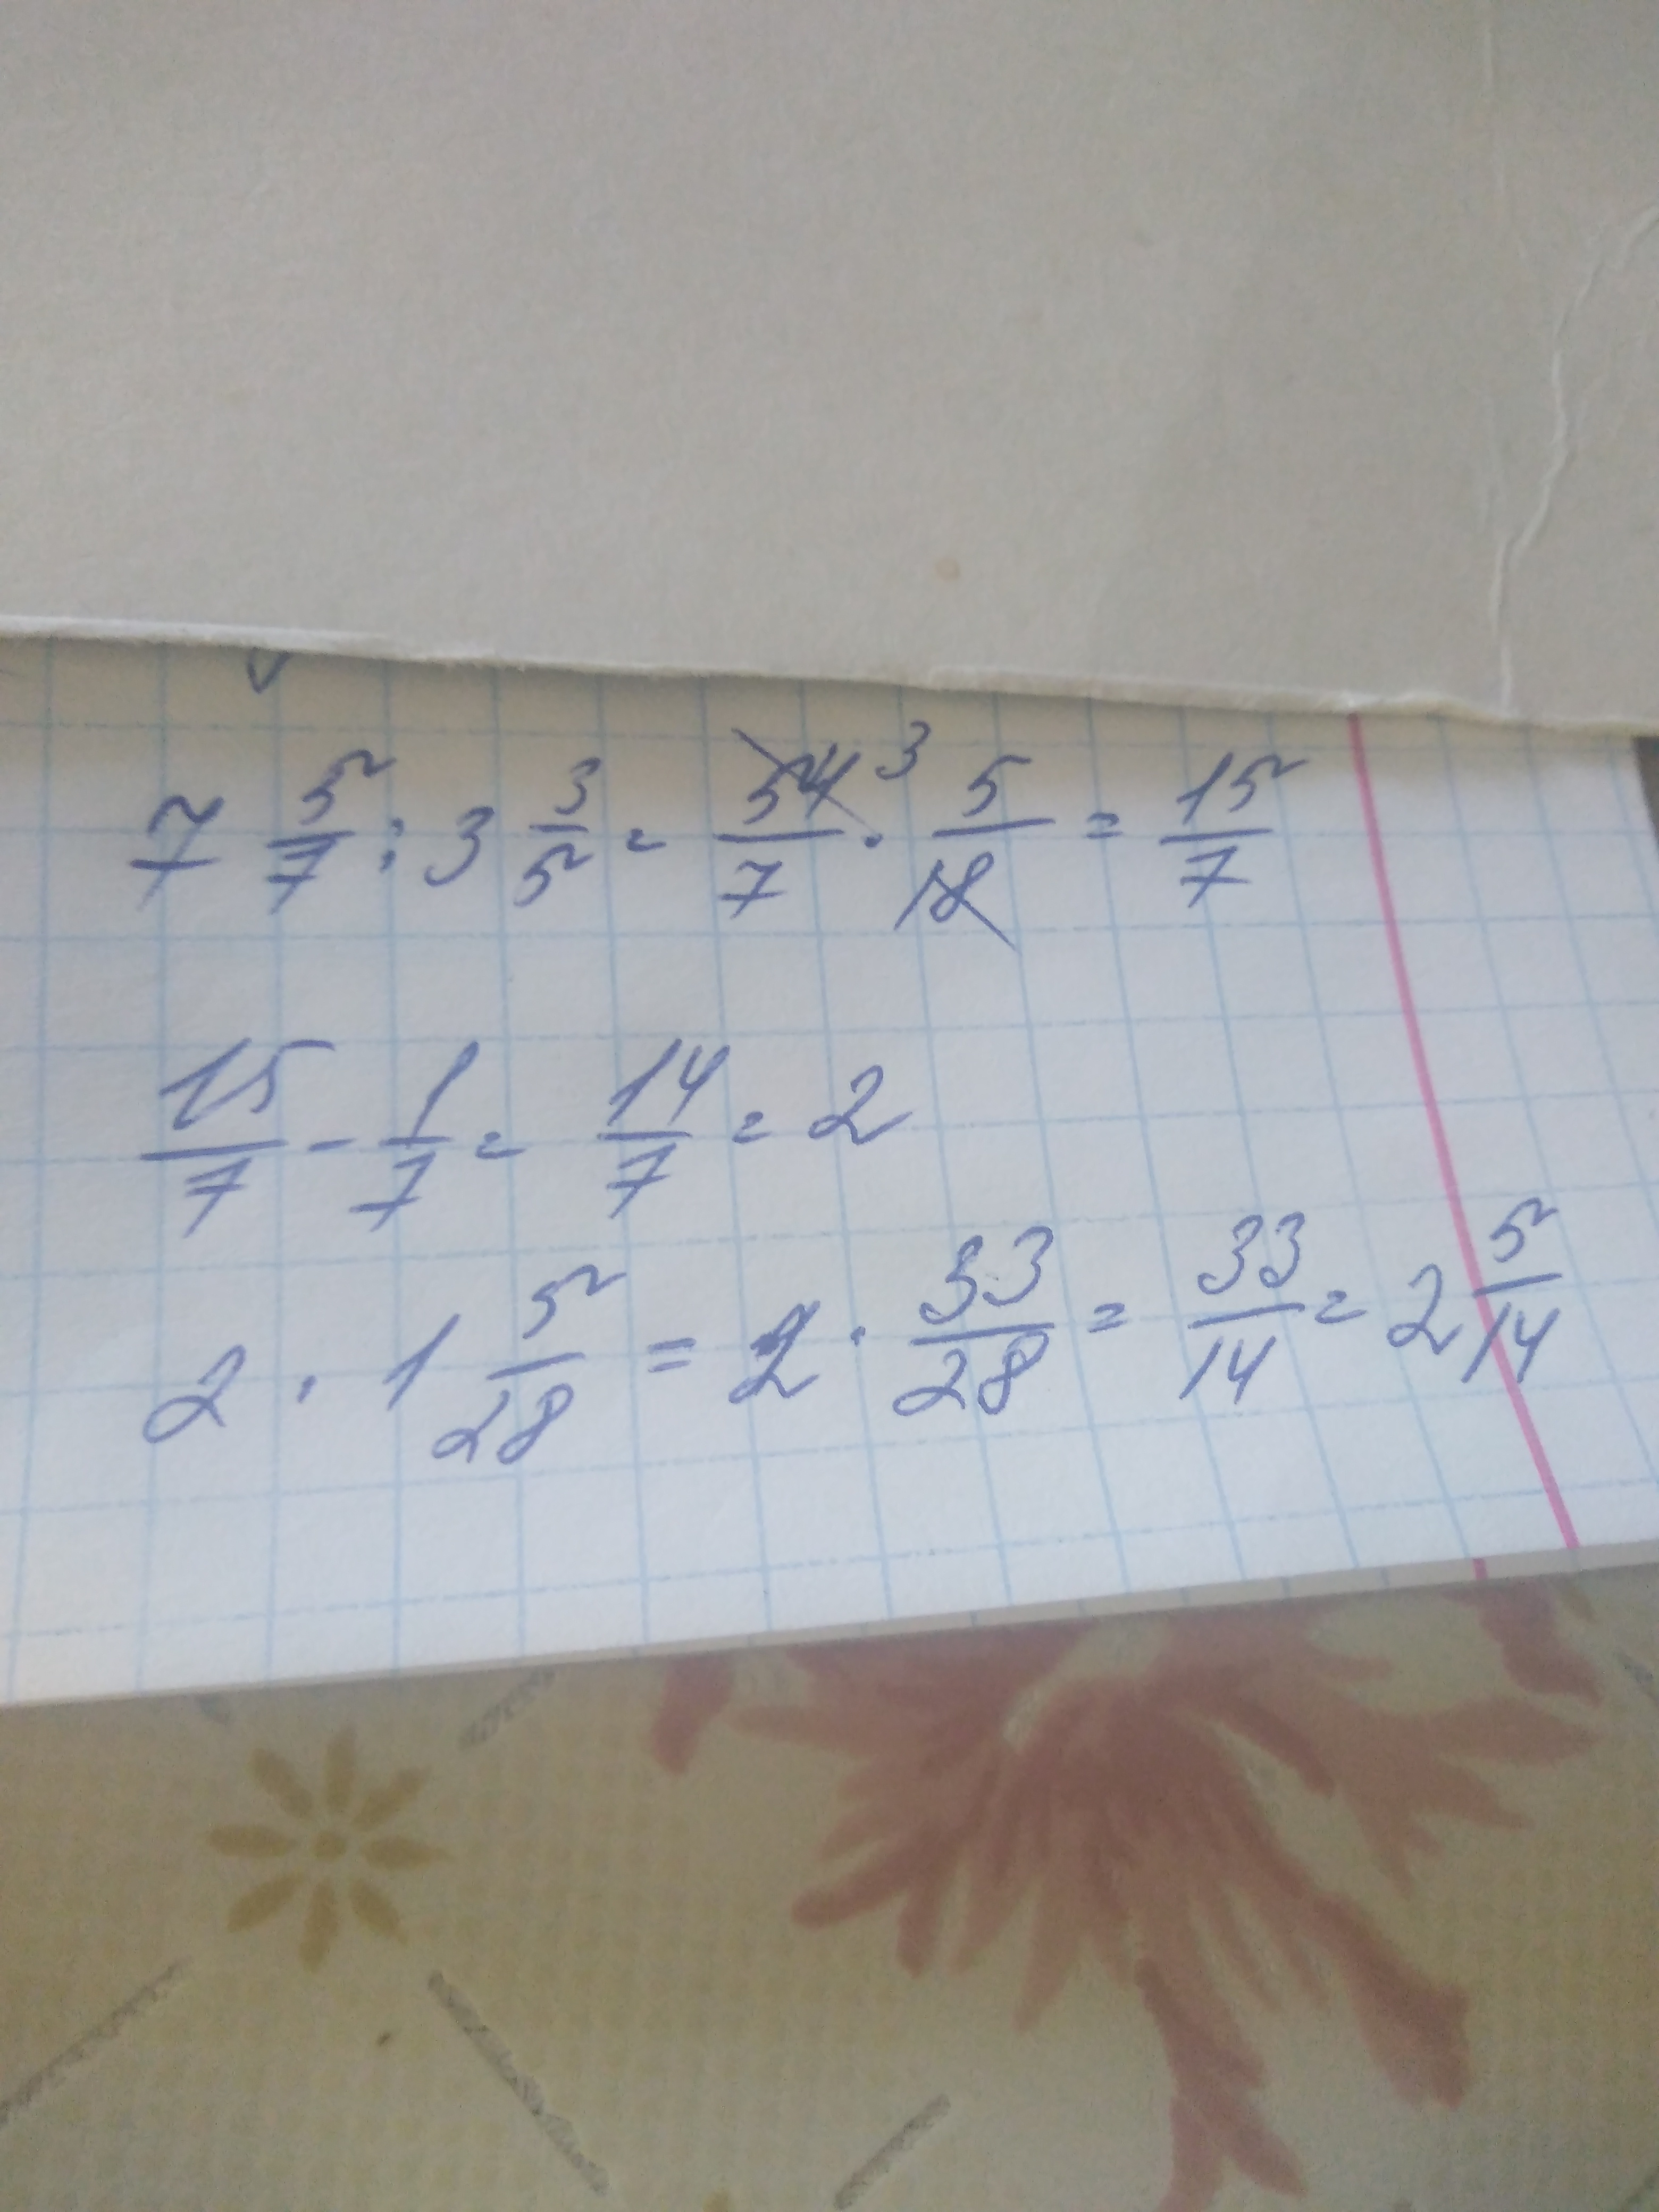 7 5/7 : 3 3/5 = 54/7 3 · 5/18 = 15/7
15/7 - 1/7 = 14/7 = 2
2 · 1 5/28 = 2 · 33/28 = 33/14 = 2 5/14